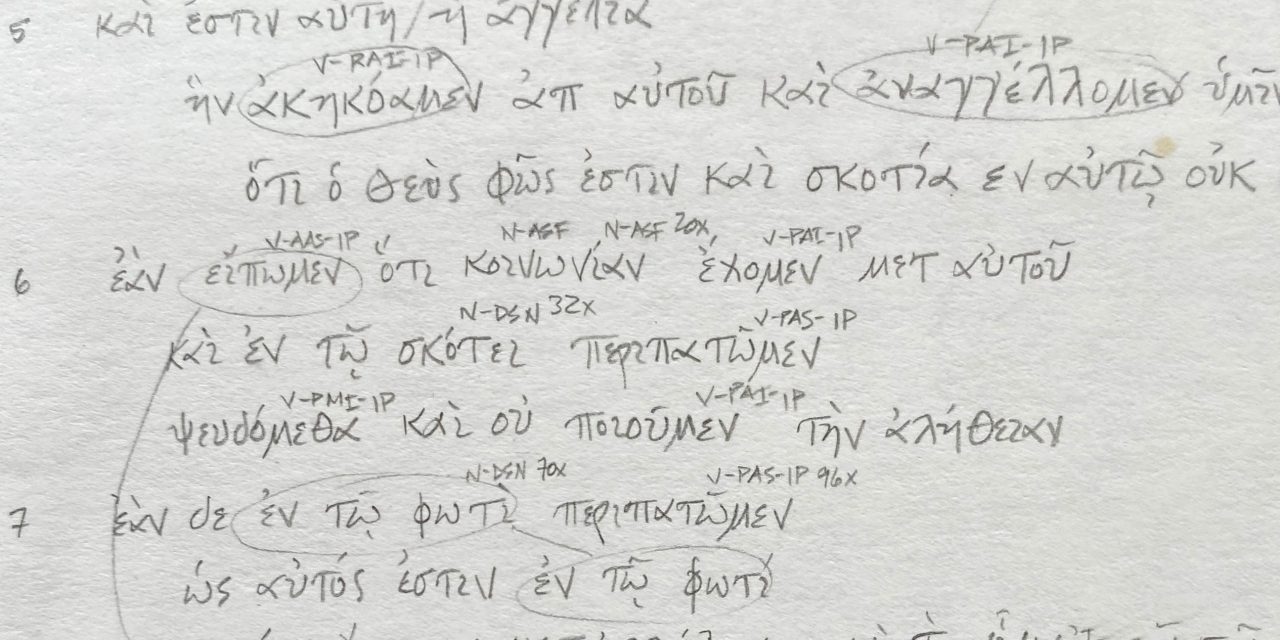 5 καὶ ἐστιν αὕτη / ἡ ἀγγελία
V-RAI-1P V-PAI-1P
ἣν ἀκηκόαμεν ἀπ αὐτοῦ καὶ ἀναγγέλλομεν ὑμῖν
ὅτι ὁ θεὸς φῶς ἐστιν καὶ σκοτία εν αὐτῷ οὐκ
V-AAS-1P N-ASF N-ASF 20x, V-PAI-1P
6 ἐὰν εἴπωμεν ὅτι κοινωνίαν ἔχομεν μετ αὐτοῦ
N-DSN 32x V-PAS-1P
καὶ ἐν τῷ σκότει περιπατῶμεν
V-PMI-1P V-PAI-1P
ψευδόμεθα καὶ οὐ ποιοῦμεν τὴν ἀλήθειαν
N-DSN 70x V-PAS-1P 96x
7 ἐὰν δε ἐν τῷ φωτὶ περιπατῶμεν
ὡς αὐτός ἐστιν ἐν τῷ φωτί